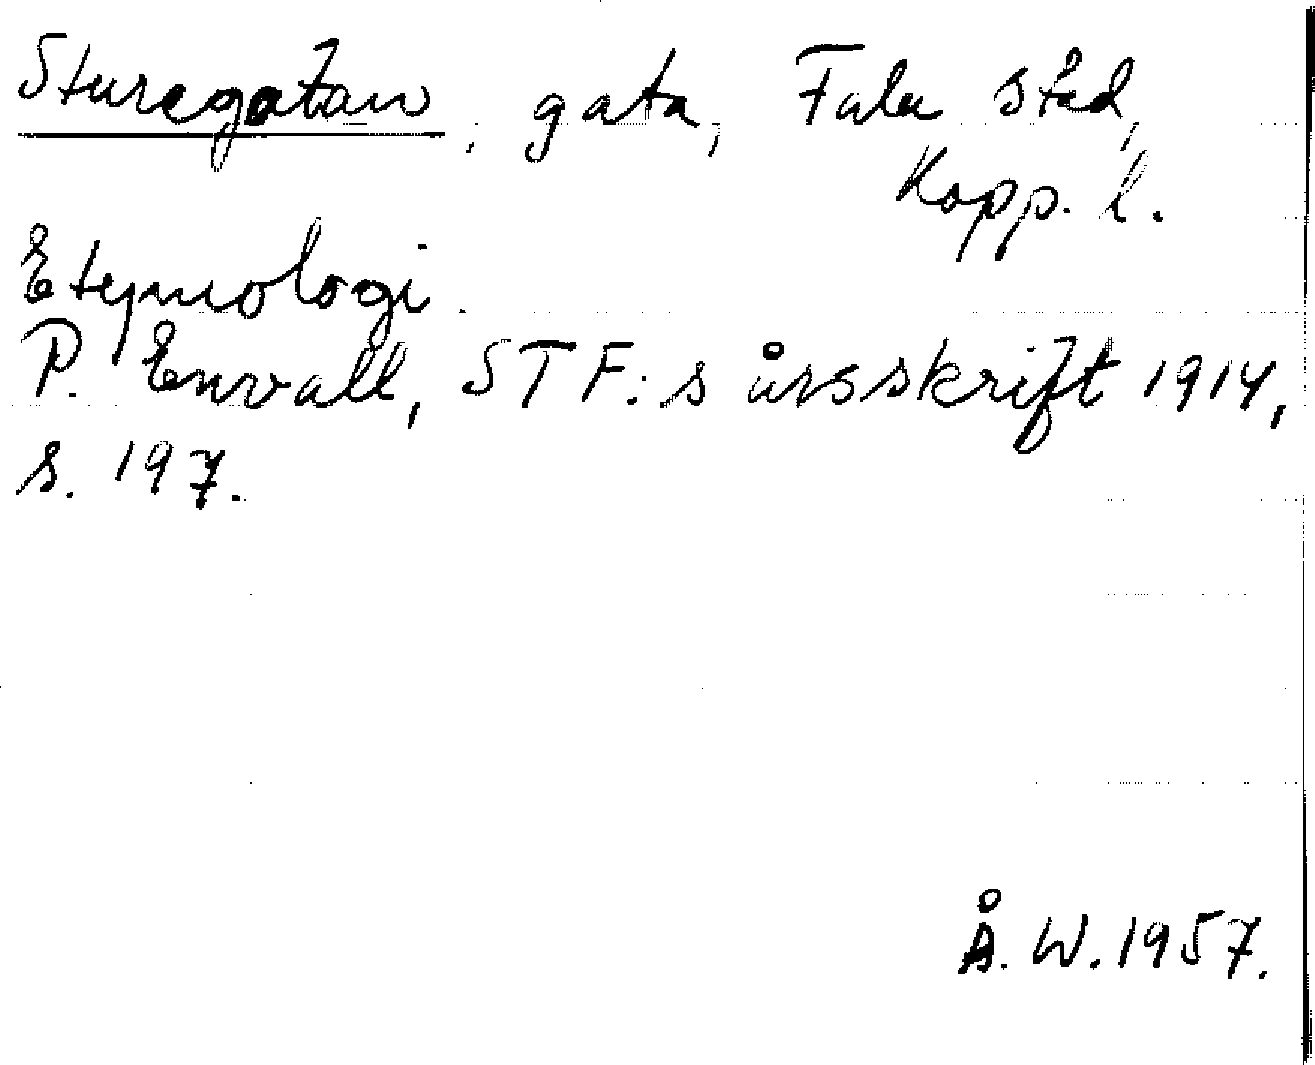 Sturegatan, gata, Falu stad,
Kopp. l.
Etymologi.
P. Envall, STF:s årsskrift 1914,
s. 197.
Å. W. 1957.